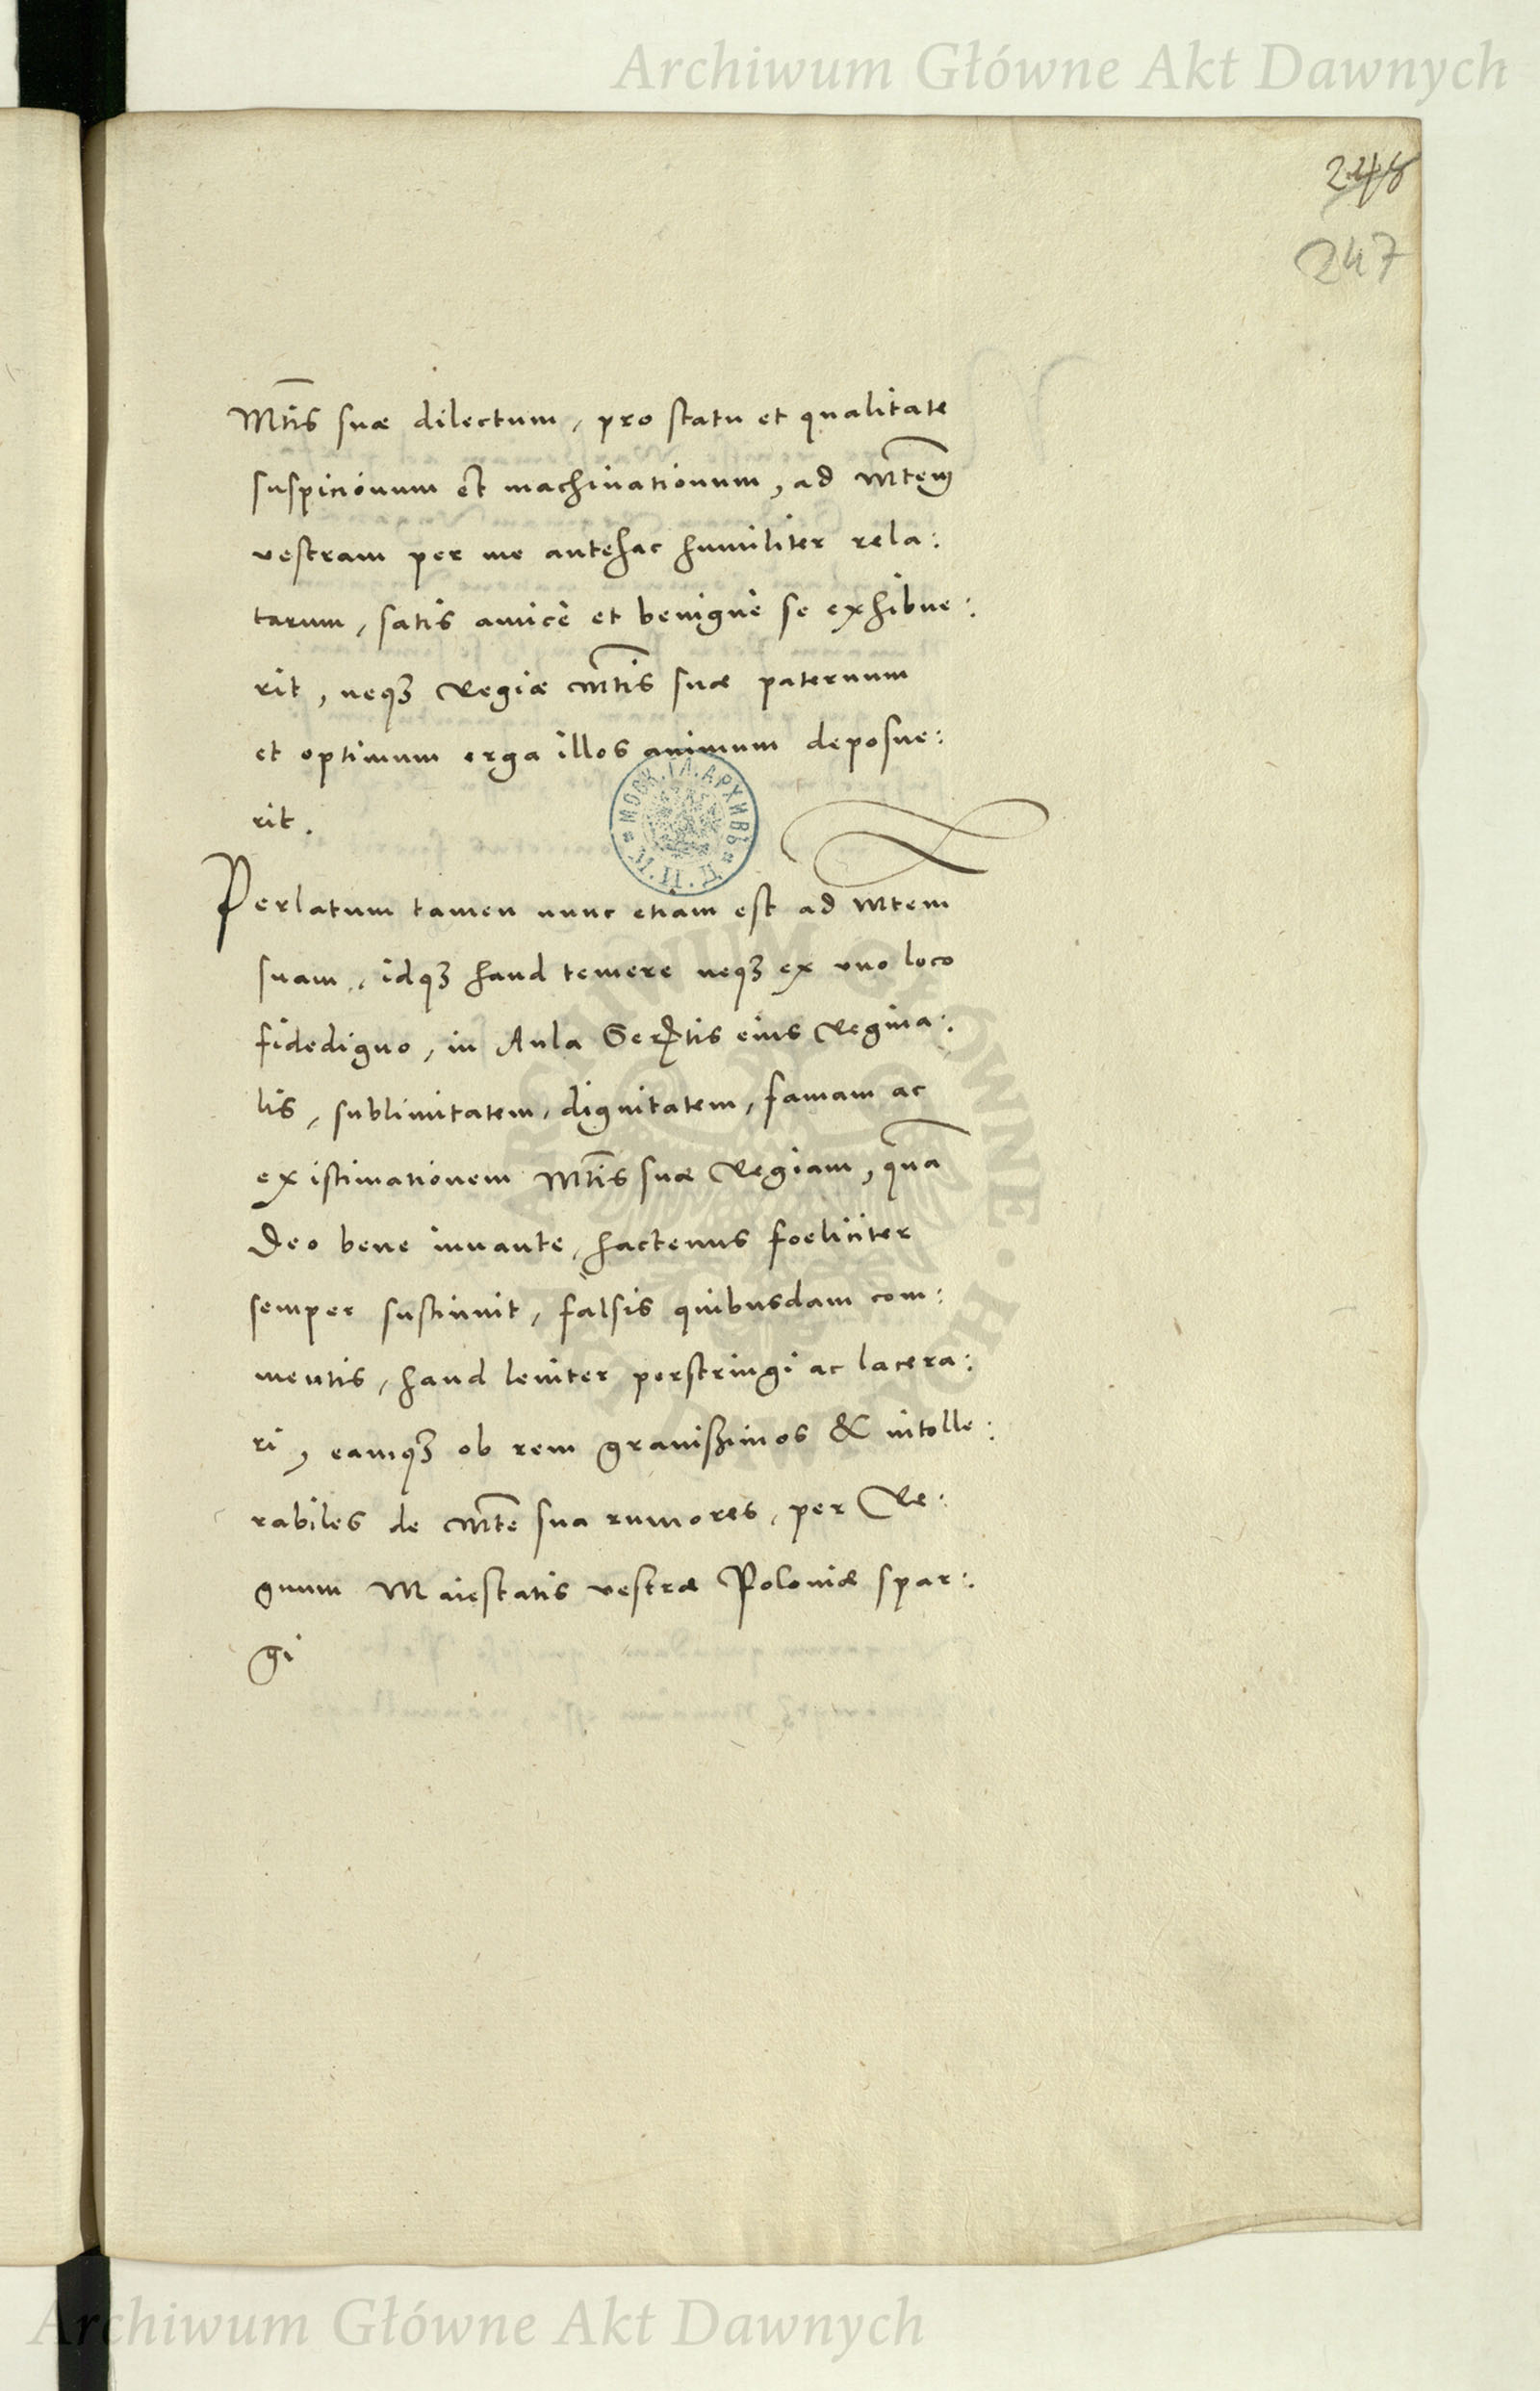 Archiwum Główne Akt Dawnych
248
247
Mtis suæ dilectum, pro statu et qualitate
suspicionum et machinationum, ad Mtem
vestram per me antehac humiliter rela:
tarum, satis amicè et benignè se exhibue:
rit, neqꝫ Regiæ Mtis suæ paternum
et optimum erga illos animum deposue:
rit.
МОСК. ГЛ. АРХИВЪ
Perlatum tamen nunc etiam est ad Mtem
suam, idqꝫ haud temere neqꝫ ex uno loco
fidedigno, in Aula Sertis eius Regina:
lis, sublimitatem, dignitatem, famam ac
existimationem Mtis suæ Regiam, qua
Deo bene iuvante, hactenus foeliciter
semper sustinuit, falsis quibusdam com:
mentis, haud leviter perstringi ac lacera:
ri, eamqꝫ ob rem gravißimos & intolle:
rabiles de Mte sua rumores, per Re:
gnum Maiestatis vestræ Poloniæ spar:
gi
Archiwum Główne Akt Dawnych